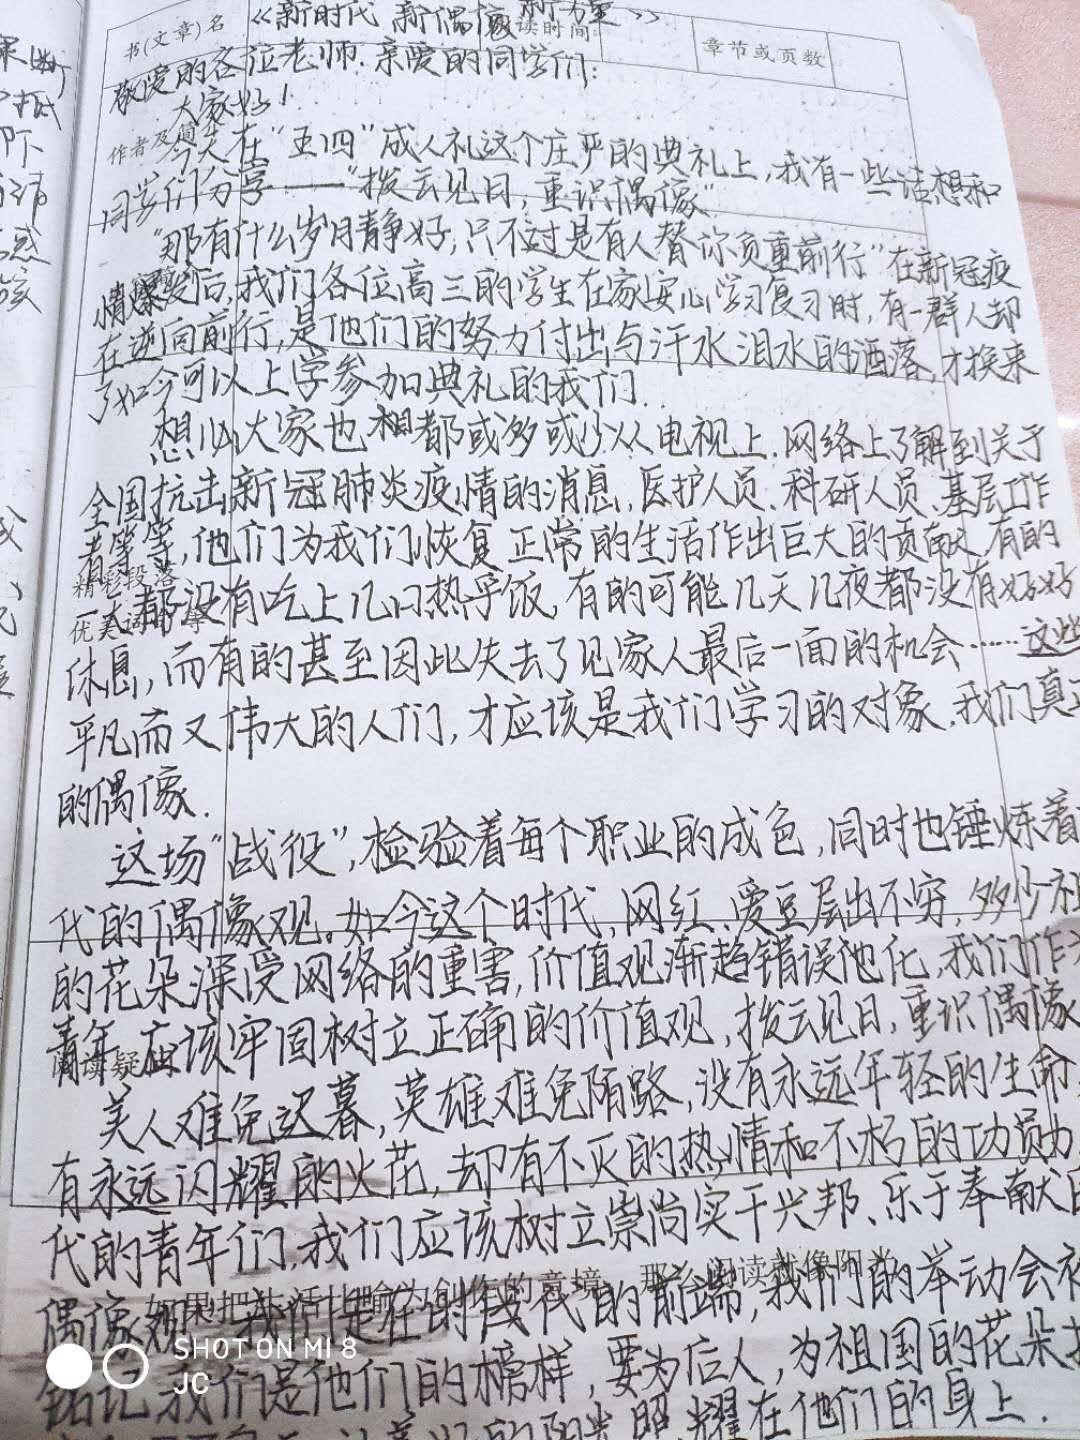 书(文章)名
《新时代 新偶像 新力量》
读时间
章节或页数
敬爱的各位老师.亲爱的同学们:
大家好!
作者及简
今天在“五四”成人礼这个庄严的典礼上,我有一些话想和
同学们分享——“拨云见日,重识偶像”
“那有什么岁月静好,只不过是有人替你负重前行”在新冠疫
情爆发后,我们各位高三的学生在家安心学习复习时,有一群人却
在逆向前行,是他们的努力付出与汗水泪水的洒落,才换来
了如今可以上学参加典礼的我们.
想必大家也都或多或少从电视上.网络上了解到关于
全国抗击新冠肺炎疫情的消息,医护人员.科研人员.基层工作
者等等,他们为我们恢复正常的生活作出巨大的贡献,有的
精彩段落
一天都没有吃上几口热乎饭,有的可能几天几夜都没有好好
优美词句
休息,而有的甚至因此失去了见家人最后一面的机会……这些
平凡而又伟大的人们,才应该是我们学习的对象,我们真正
的偶像.
这场“战役”,检验着每个职业的成色,同时也锤炼着
代的偶像观。如今这个时代,网红、爱豆层出不穷,多少祖
的花朵深受网络的重害,价值观渐趋错误他化,我们作为
青年,应该牢固树立正确的价值观,拨云见日,重识偶像
阅读疑
美人难免迟暮,英雄难免陌路,没有永远年轻的生命,
有永远闪耀的火花,却有不灭的热情和不朽的功勋,
代的青年们,我们应该树立崇尚实干兴邦、乐于奉献的
如果把生活比喻为创作的意境,那么阅读就像阳光
偶像观,我们是在时代的前端,我们的举动会被
铭记,我们是他们的榜样,要为后人,为祖国的花朵
的阳光照耀在他们的身上.
SHOT ON MI 8
JC